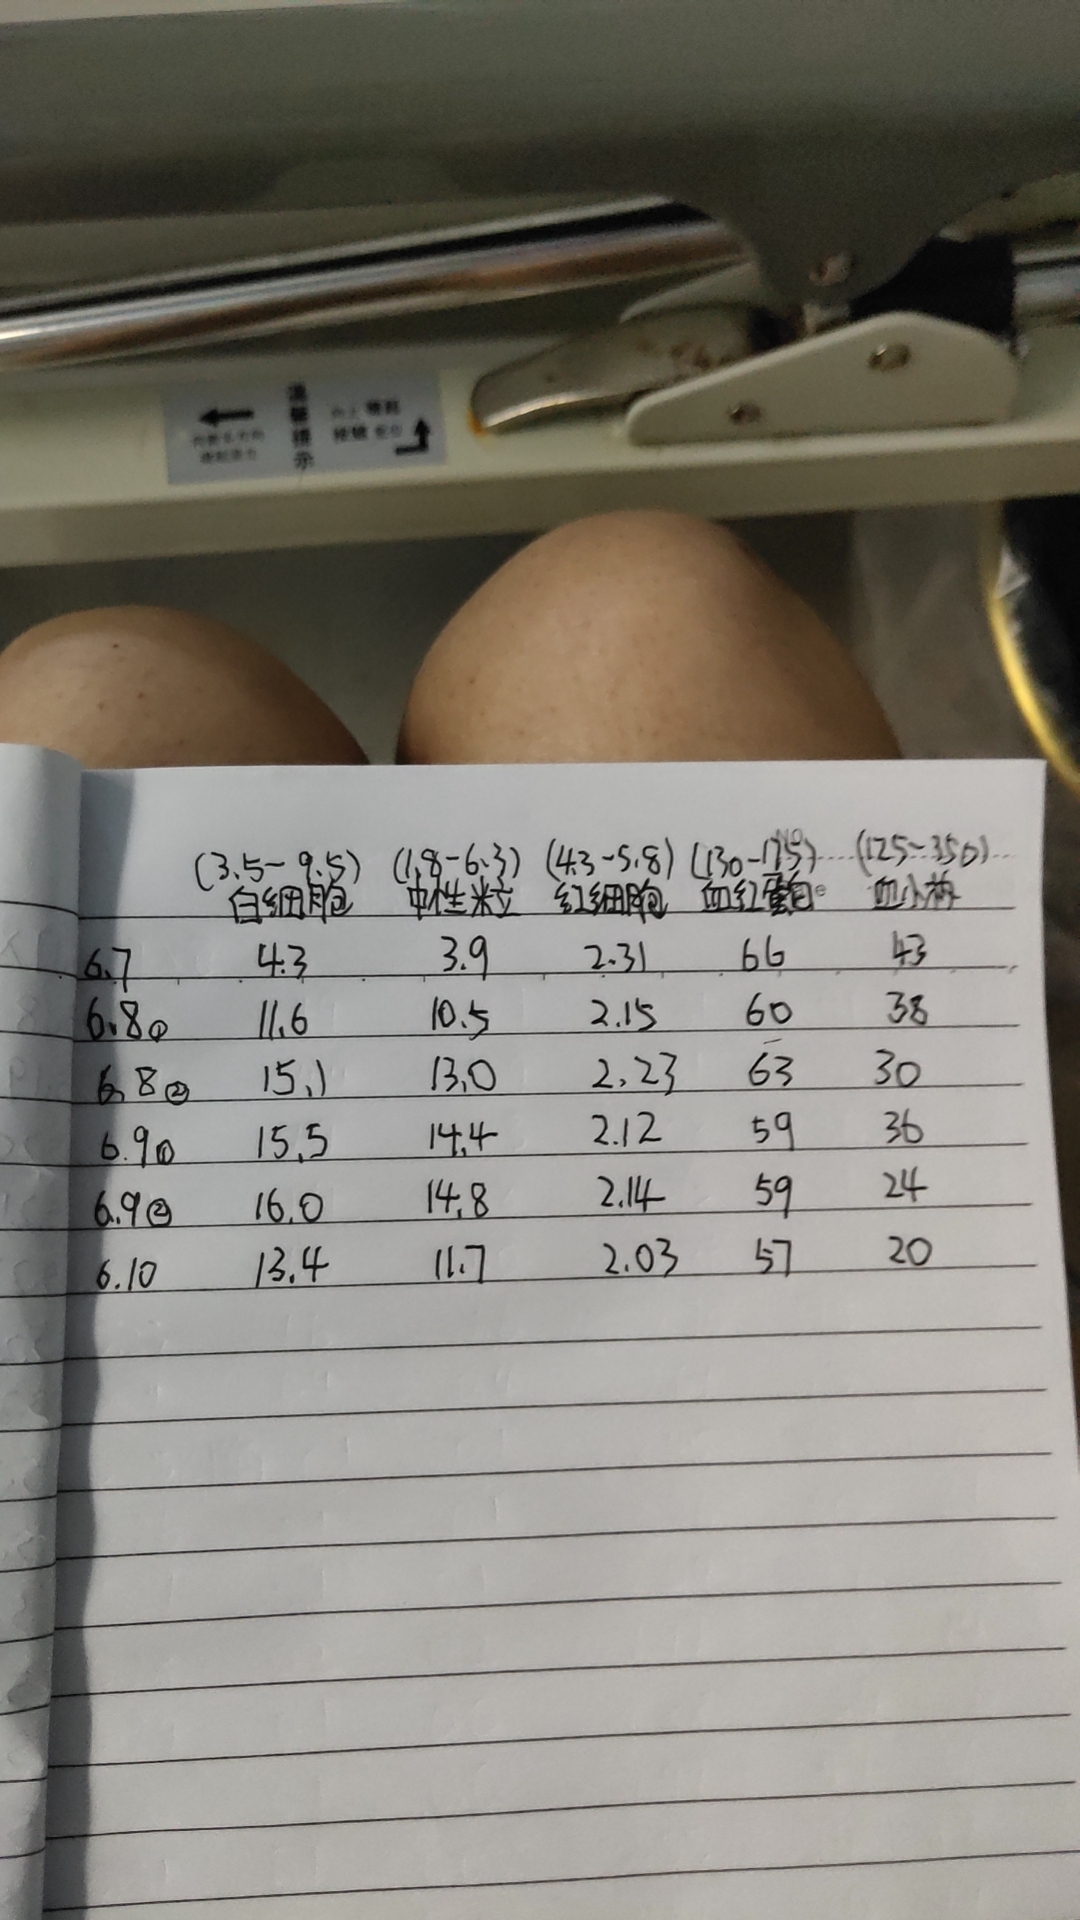 温馨提示
(3.5-9.5) (1.8-6.3) (4.3-5.8) (130-175) (125-350)
白细胞 中性粒 红细胞 血红蛋白 血小板
6.7 4.3 3.9 2.31 66 43
6.8① 11.6 10.5 2.15 60 38
6.8② 15.1 13.0 2.23 63 30
6.9① 15.5 14.4 2.12 59 36
6.9② 16.0 14.8 2.14 59 24
6.10 13.4 11.7 2.03 57 20